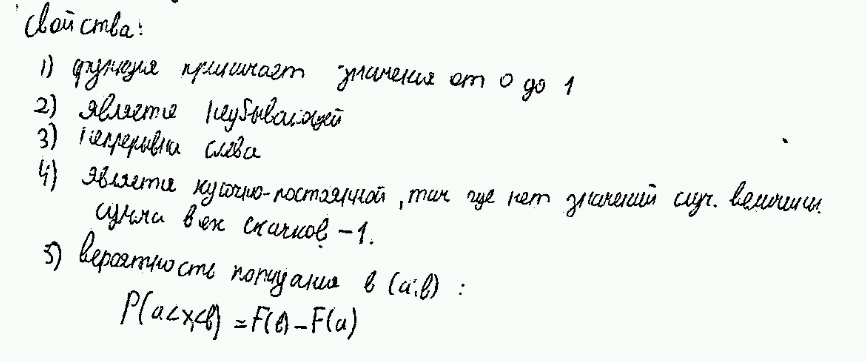 Свойства:
1) функция принимает значения от 0 до 1
2) является неубывающей
3) непрерывна слева
4) является кусочно-постоянной, там где нет значений случ. величины.
сумма всех скачков – 1.
5) вероятность попадания в (a;b) :
P(a<x<b) = F(b) – F(a)